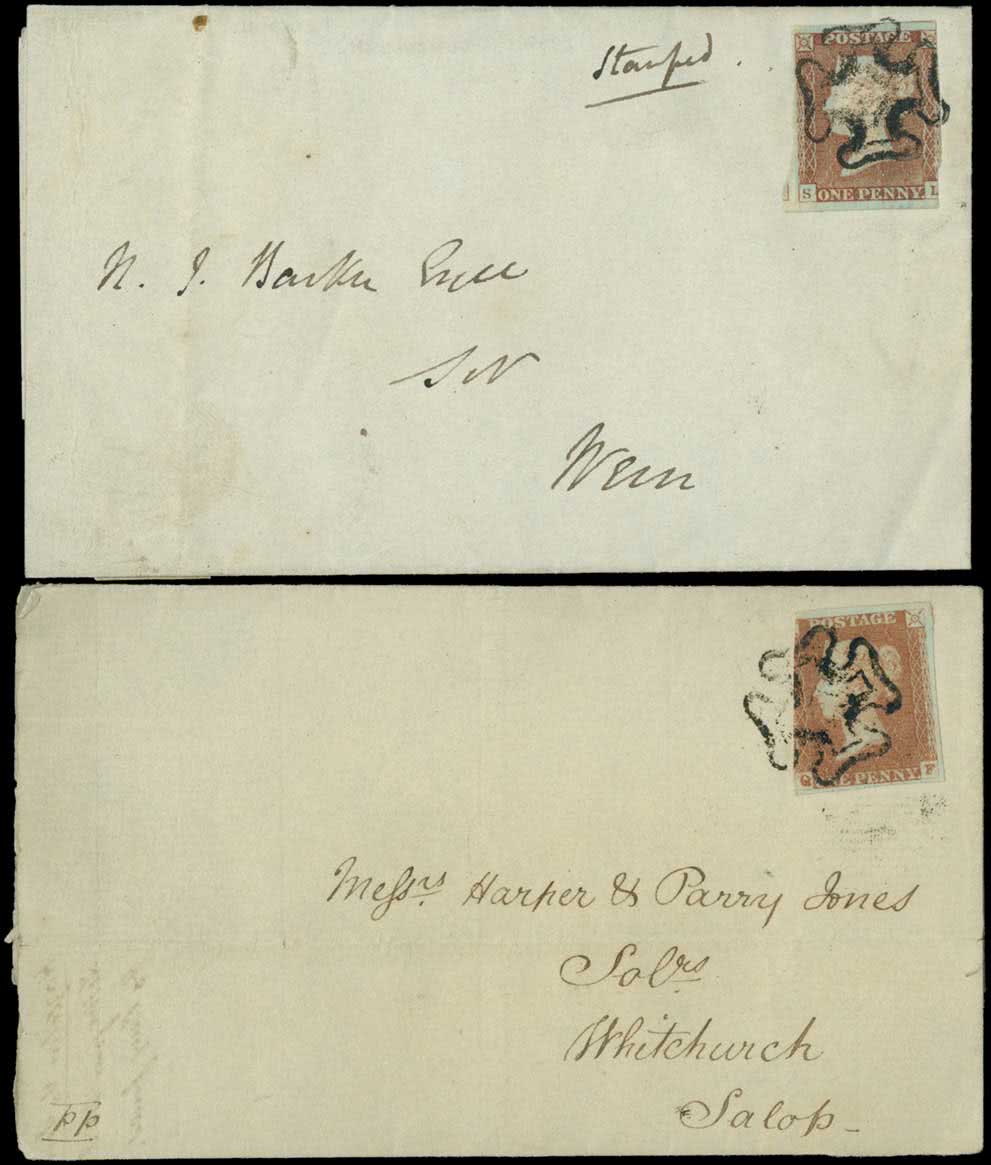 Stamped.
POSTAGE
S ONE PENNY. L
N. J. Barker Esqre
Solr
Wem
POSTAGE
Q NE PENNY F
Messrs Harper & Parry Jones
Solrs
Whitchurch
Salop
pp